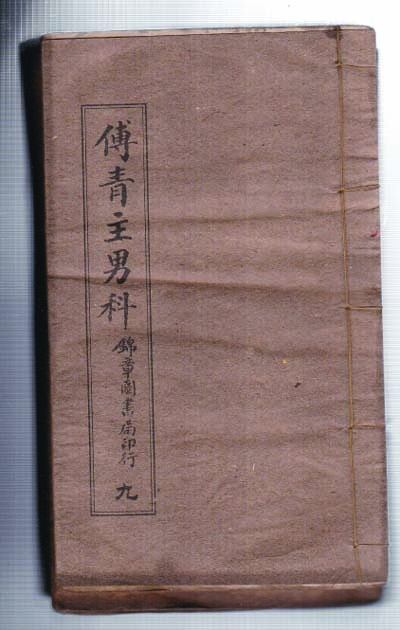 傅青主男科
錦章圖書局印行
九